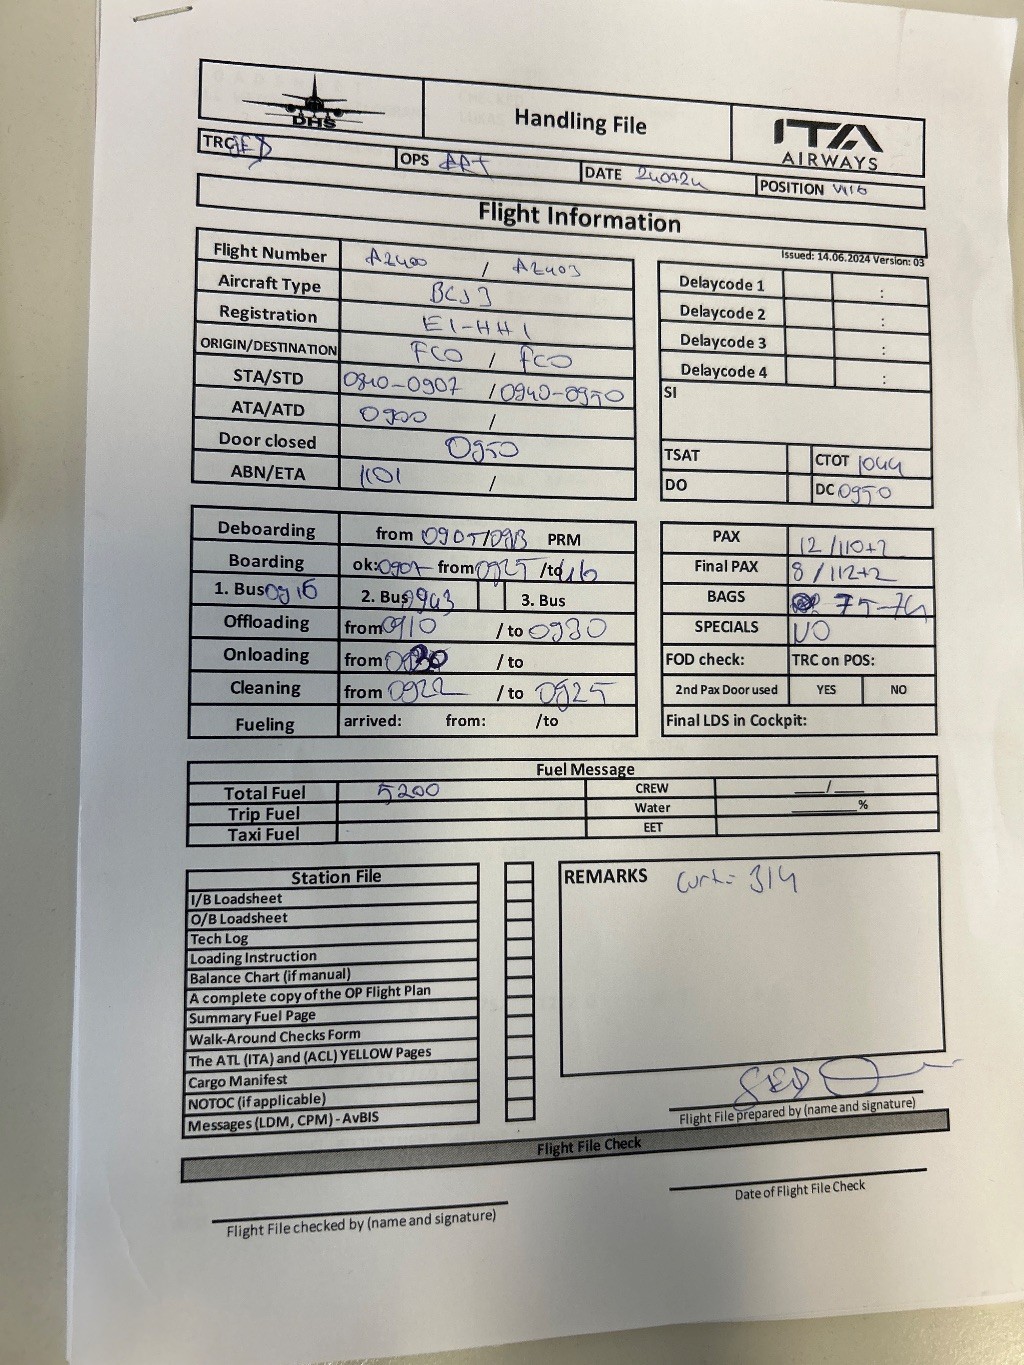 DHS
Handling File
ITA
AIRWAYS
TRC SED OPS ART DATE 240724 POSITION W16
Flight Information
Issued: 14.06.2024 Version: 03
Flight Number AZ400 / AZ403
Aircraft Type BCS3
Registration EI-HHI
ORIGIN/DESTINATION FCO / FCO
STA/STD 0810-0907 /0940-0950
ATA/ATD 0900 /
Door closed 0950
ABN/ETA 1101 /
Delaycode 1 :
Delaycode 2 :
Delaycode 3 :
Delaycode 4 :
SI
TSAT CTOT 1044
DO DC 0950
Deboarding from 0905/0913 PRM
Boarding ok: 0907 from 0925 /to
1. Bus 0916 2. Bus 0943 3. Bus
Offloading from 0910 / to 0930
Onloading from 0930 / to
Cleaning from 0922 / to 0925
Fueling arrived: from: /to
PAX 12/110+2
Final PAX 8/112+2
BAGS 75-74
SPECIALS NO
FOD check: TRC on POS:
2nd Pax Door used YES NO
Final LDS in Cockpit:
Fuel Message
Total Fuel 5200 CREW ___/___
Trip Fuel Water ______%
Taxi Fuel EET
Station File
I/B Loadsheet
O/B Loadsheet
Tech Log
Loading Instruction
Balance Chart (if manual)
A complete copy of the OP Flight Plan
Summary Fuel Page
Walk-Around Checks Form
The ATL (ITA) and (ACL) YELLOW Pages
Cargo Manifest
NOTOC (if applicable)
Messages (LDM, CPM) - AvBIS
REMARKS 314
SED
Flight File prepared by (name and signature)
Flight File Check
Flight File checked by (name and signature)
Date of Flight File Check